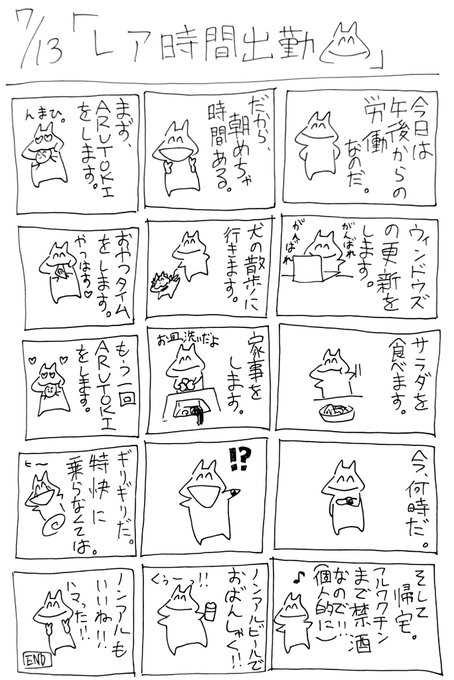 7/13「レア時間出勤」
今日は
午後からの
労働
なのだ。
だから、
朝めちゃ
時間ある。
まず、
ARUTOKI
をします。
んまひ。
ウィンドウズ
の更新を
します。
がんばれ
がんばれ
犬の散歩に
行きます。
おやつタイム
をします。
やっほす♡
サラダを
食べます。
家事を
します。
お皿洗いだよ
もう一回
ARUTOKI
をします。
今、何時だ。
!?
ギリギリだ。
特快に
乗らなくては。
ヒ〜
そして
帰宅。
アルワクチン
まで禁酒
なので!!
(個人的に)
♪
ノンアルビールで
おばんしゃく!!
くぅーっ!!
ノンアルも
いいね!!
ハマった!!
END